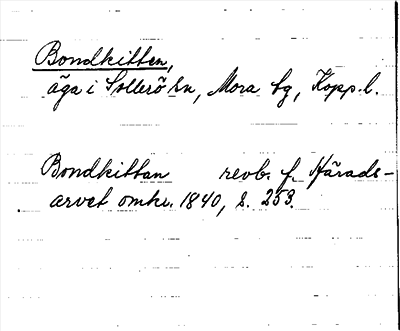 Bondkitten,
äga i Sollerö sn, Mora tg, Kopp. l.
Bondkittan revb. f. Härads-
arvet omkr. 1840, s. 253.